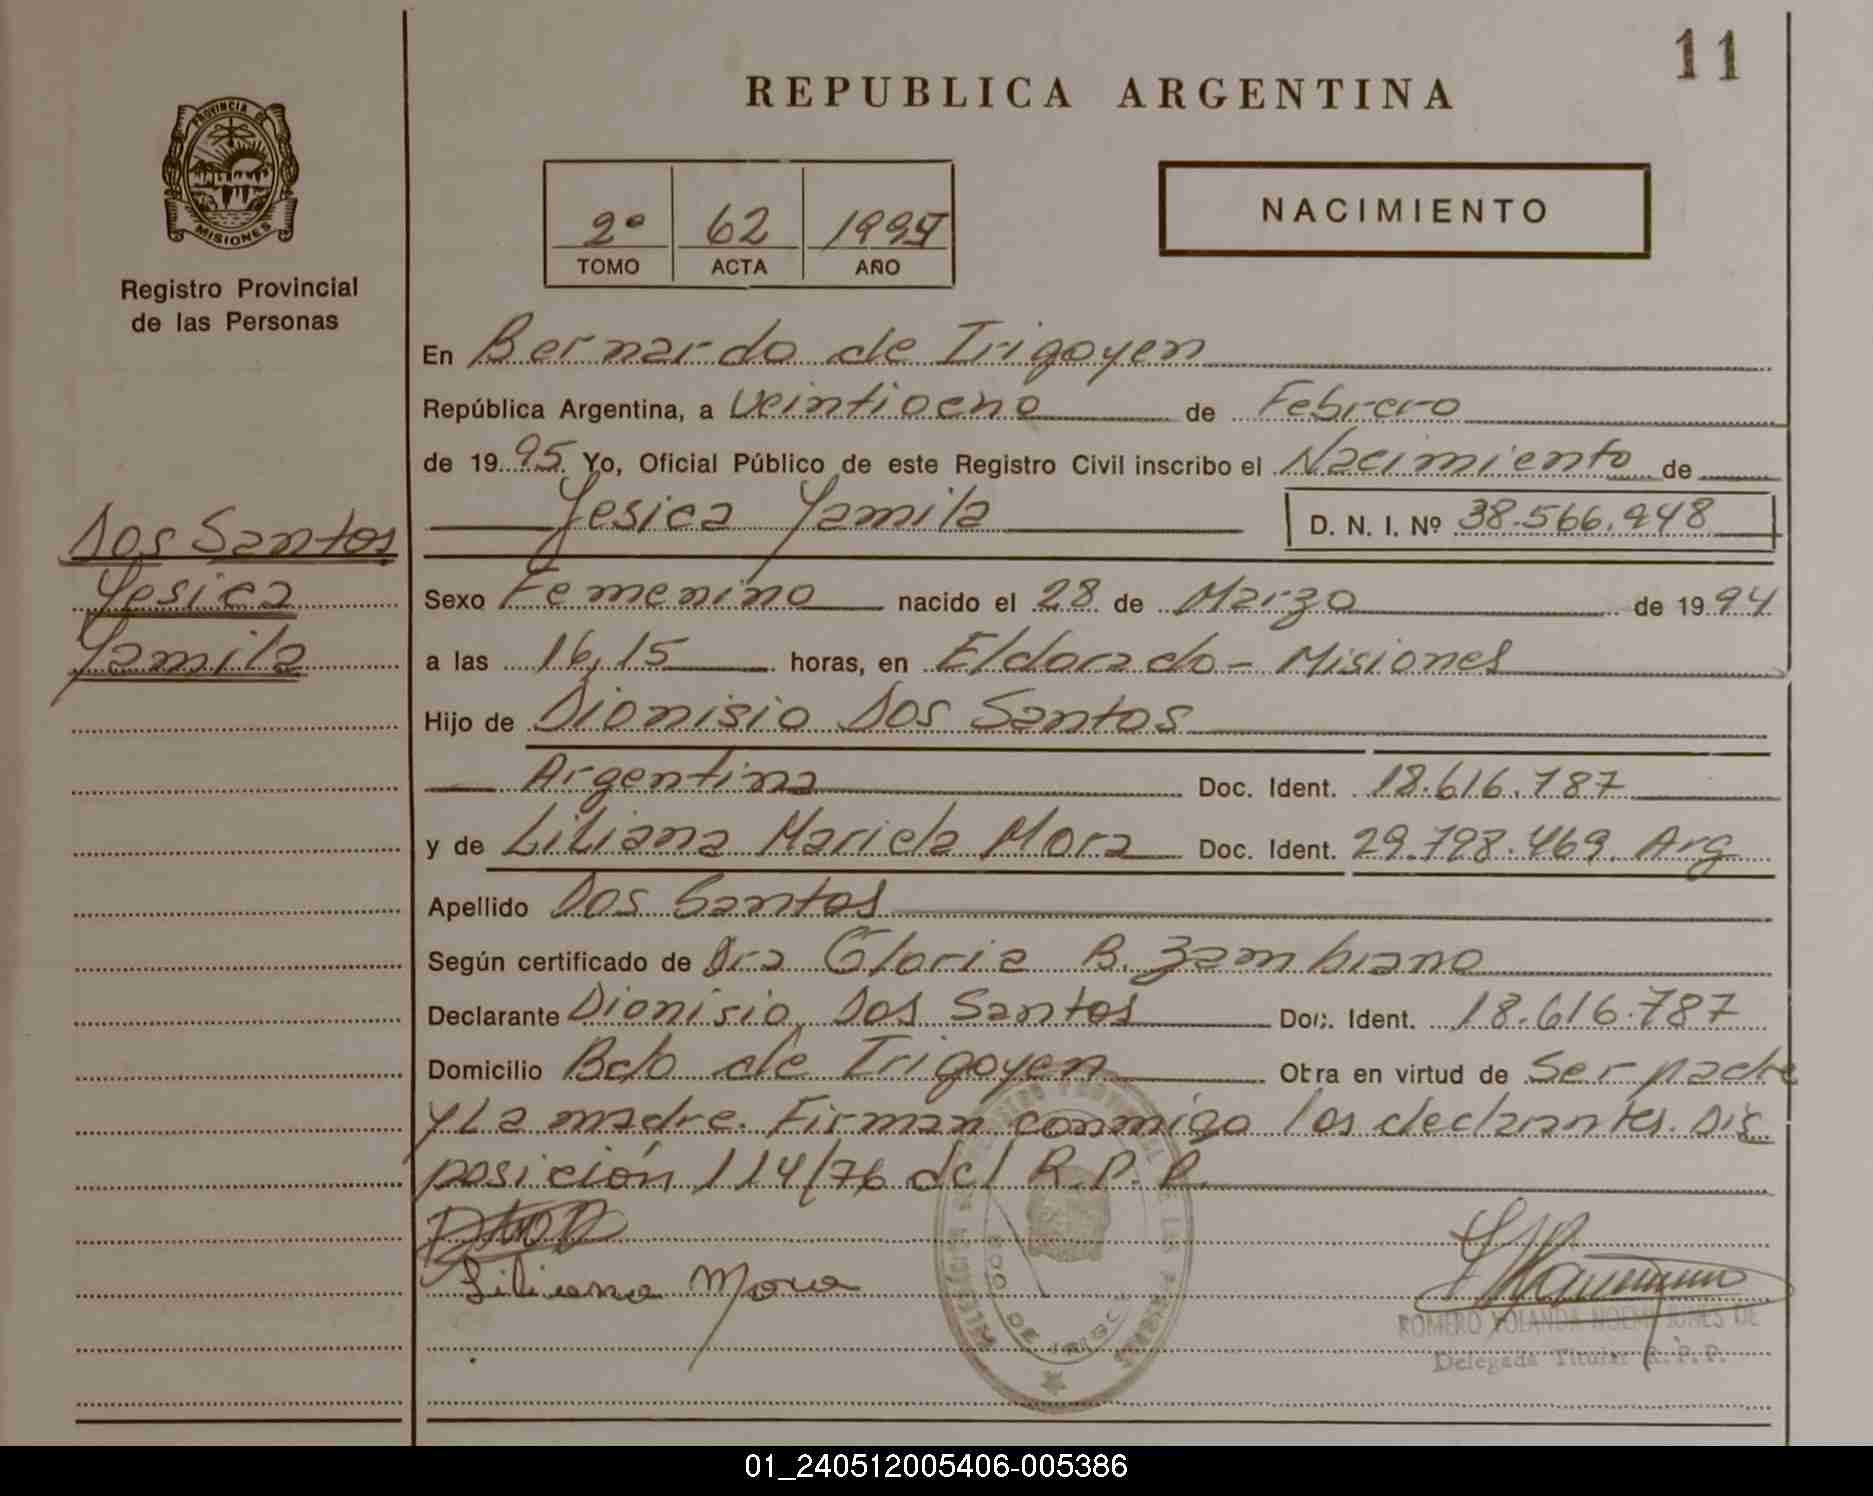 11
REPUBLICA ARGENTINA
PROVINCIA DE
MISIONES
Registro Provincial
de las Personas
2º 62
TOMO ACTA AÑO
NACIMIENTO
En Bernardo de Irigoyen
República Argentina, a veintiocho de Febrero
de 1995 Yo, Oficial Público de este Registro Civil inscribo el Nacimiento de
Yesica Yamila D. N. I. Nº 38.566.948
Dos Santos
Yesica
Yamila
Sexo Femenino nacido el 28 de Marzo de 1994
a las 16,15 horas, en Eldorado - Misiones
Hijo de Dionisio Dos Santos
Argentina Doc. Ident. 18.616.787
y de Liliana Mariela Mora Doc. Ident. 29.798.469. Arg
Apellido Dos Santos
Según certificado de Dra Gloria B. Zambrano
Declarante Dionisio Dos Santos Doc. Ident. 18.616.787
Domicilio Bdo de Irigoyen Obra en virtud de Ser padre
y La madre. Firman conmigo los declarantes. Dis
posición 114/76 del R.P.P.
Liliana Mora
ROMERO YOLANDA NOEMI JONES DE
Delegada Titular R. P. P.
01_240512005406-005386